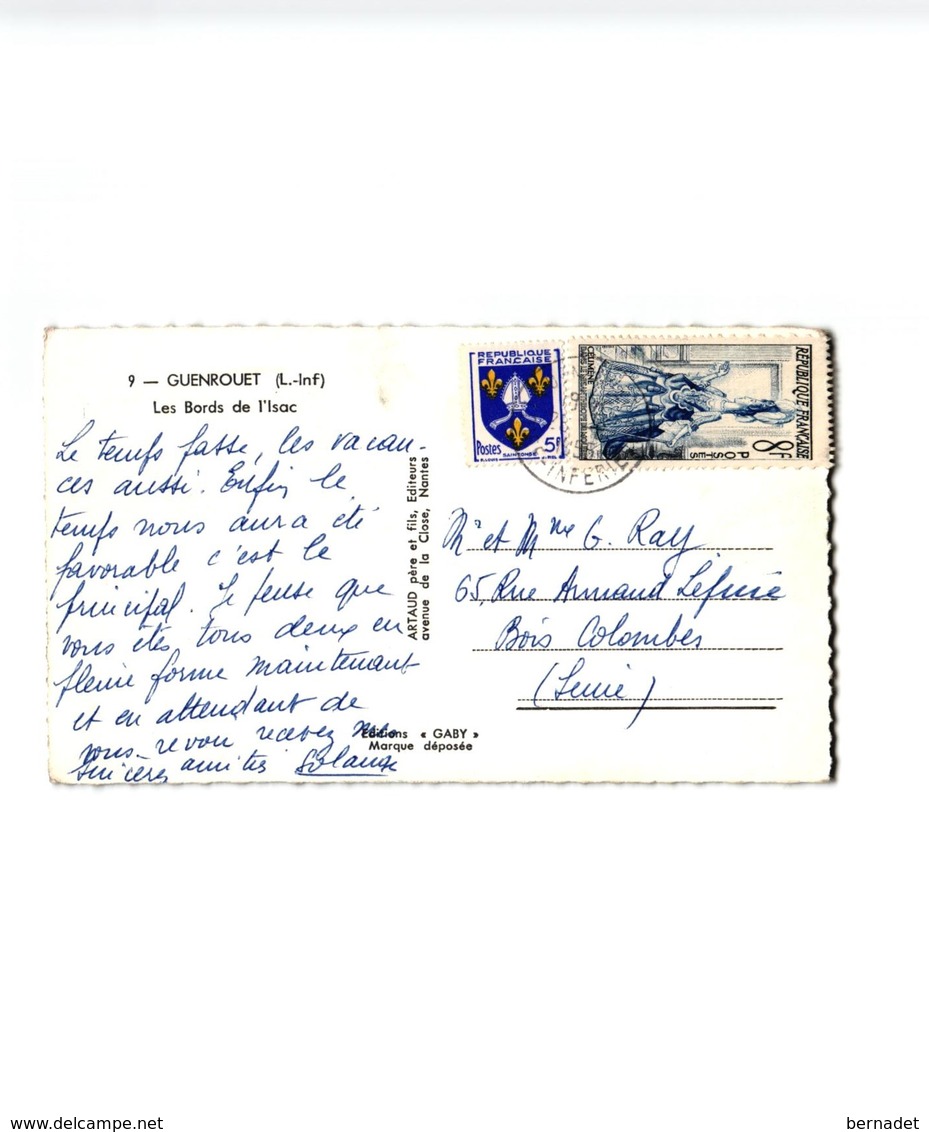 9 — GUENROUET (L.-Inf)
Les Bords de l'Isac
Le temps passe, les vacan-
ces aussi. Enfin le
temps nous aura été
favorable c'est le
principal. Je pense que
vous êtes tous deux en
pleine forme maintenant
et en attendant de
vous revoir recevez mes
sincères amitiés Solange
ARTAUD père et fils, Editeurs
avenue de la Close, Nantes
Editions « GABY »
Marque déposée
REPUBLIQUE
FRANÇAISE
Postes 5F
SAINTONGE
REPUBLIQUE FRANÇAISE
8F
POSTES
CELIMENE
INFERIE
Mr et Mme G. Ray
65, Rue Armand Lépine
Bois Colombes
(Seine)
bernadet